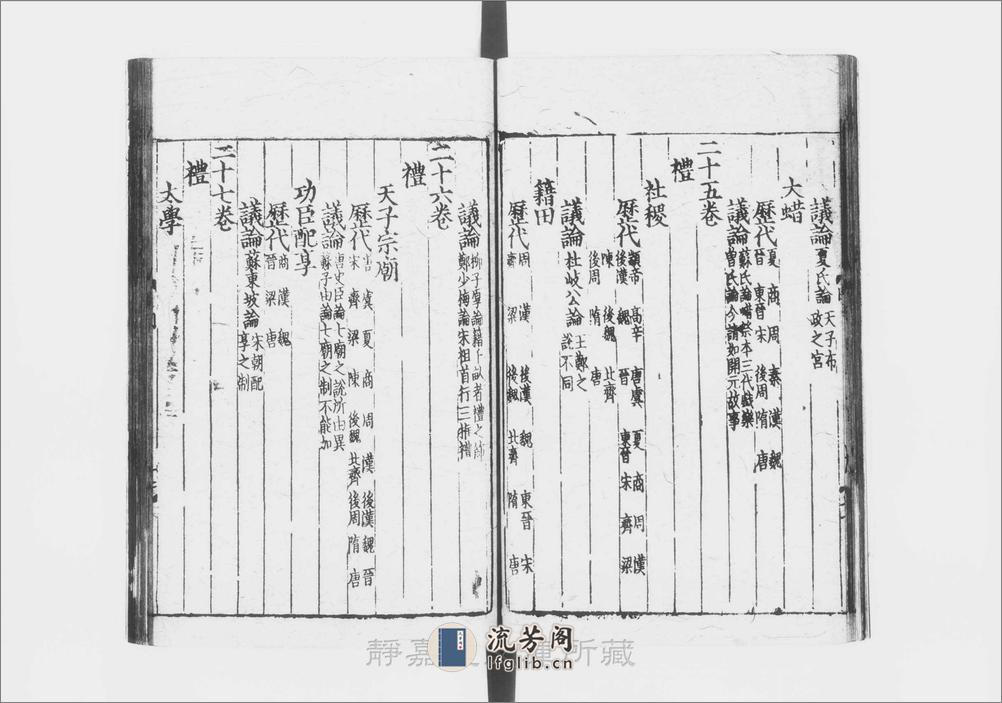 議論夏氏論天子布政之宮
大蜡
歷代夏商周秦漢魏晉東晉宋後周隋唐
議論蘇氏論蜡祭本三代戲樂曾氏論今請如開元故事
二十五卷
禮
社稷
歷代顓帝高辛唐虞夏商周漢後漢魏晉東晉宋齊梁
陳後魏北齊後周隋唐
議論杜岐公論王鄭之說不同
籍田
歷代周漢後漢魏東晉宋齊梁後魏北齊隋唐
議論柳子厚論籍千畝者禮之飾鄭少梅論宋祖首行三推禮
二十六卷
禮
天子宗廟
歷代唐虞夏商周漢後漢魏晉宋齊梁陳後魏北齊後周隋唐
議論唐史臣論七廟之說所由異蘇子由論七廟之制不能加
功臣配享
歷代商漢魏晉梁唐
議論蘇東坡論宋朝配享之制
二十七卷
禮
太學
靜嘉
所藏
流芳阁
lfglib.cn